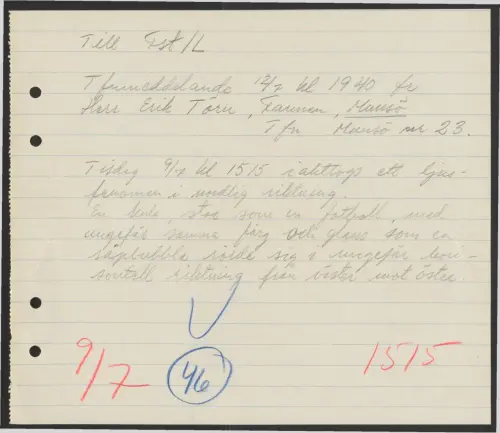 Till Fst/L
Tfnmeddelande 12/7 kl 1940 fr
Herr Erik Törn, Farmen, Munsö
Tfn Munsö nr 23.
Tisdag 9/7 kl 1515 iakttogs ett ljus-
fenomen i nordlig riktning.
En kula, stor som en fotboll, med
ungefär samma färg och glans som en
såpbubbla rörde sig i ungefär hori-
sontell riktning från väster mot öster.
9/7 46 1515